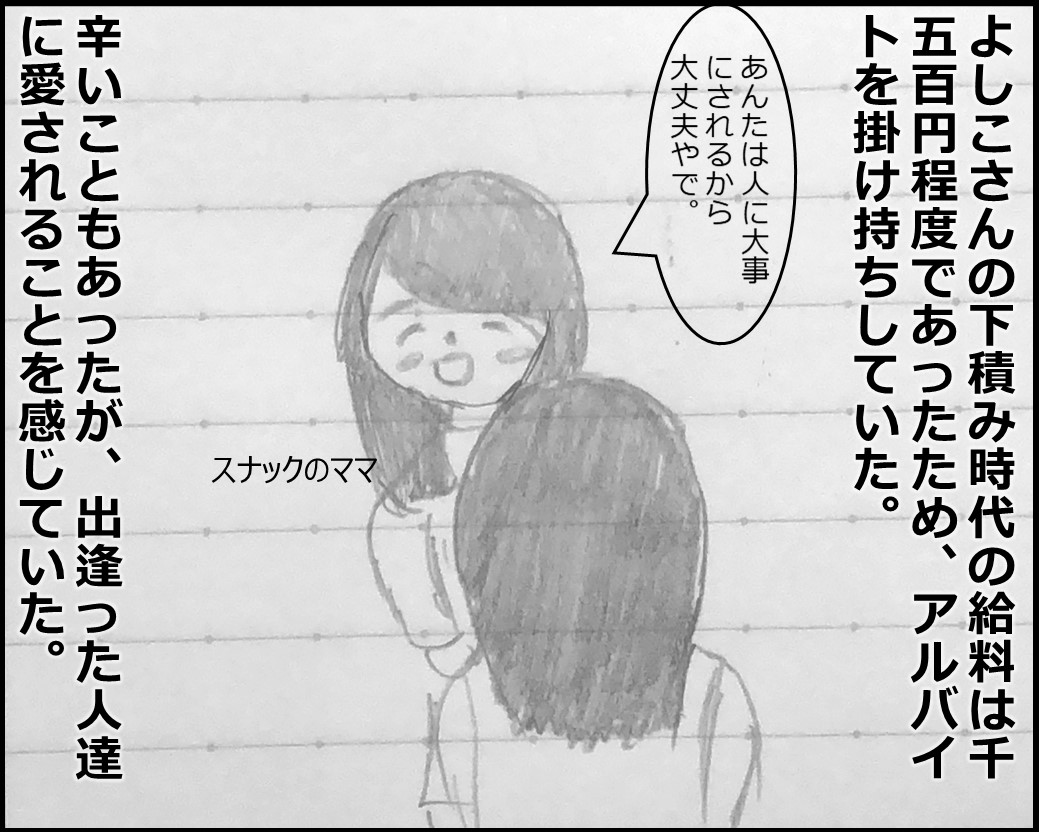 よしこさんの下積み時代の給料は千
五百円程度であったため、アルバイ
トを掛け持ちしていた。
あんたは人に大事
にされるから
大丈夫やで。
スナックのママ
辛いこともあったが、出逢った人達
に愛されることを感じていた。